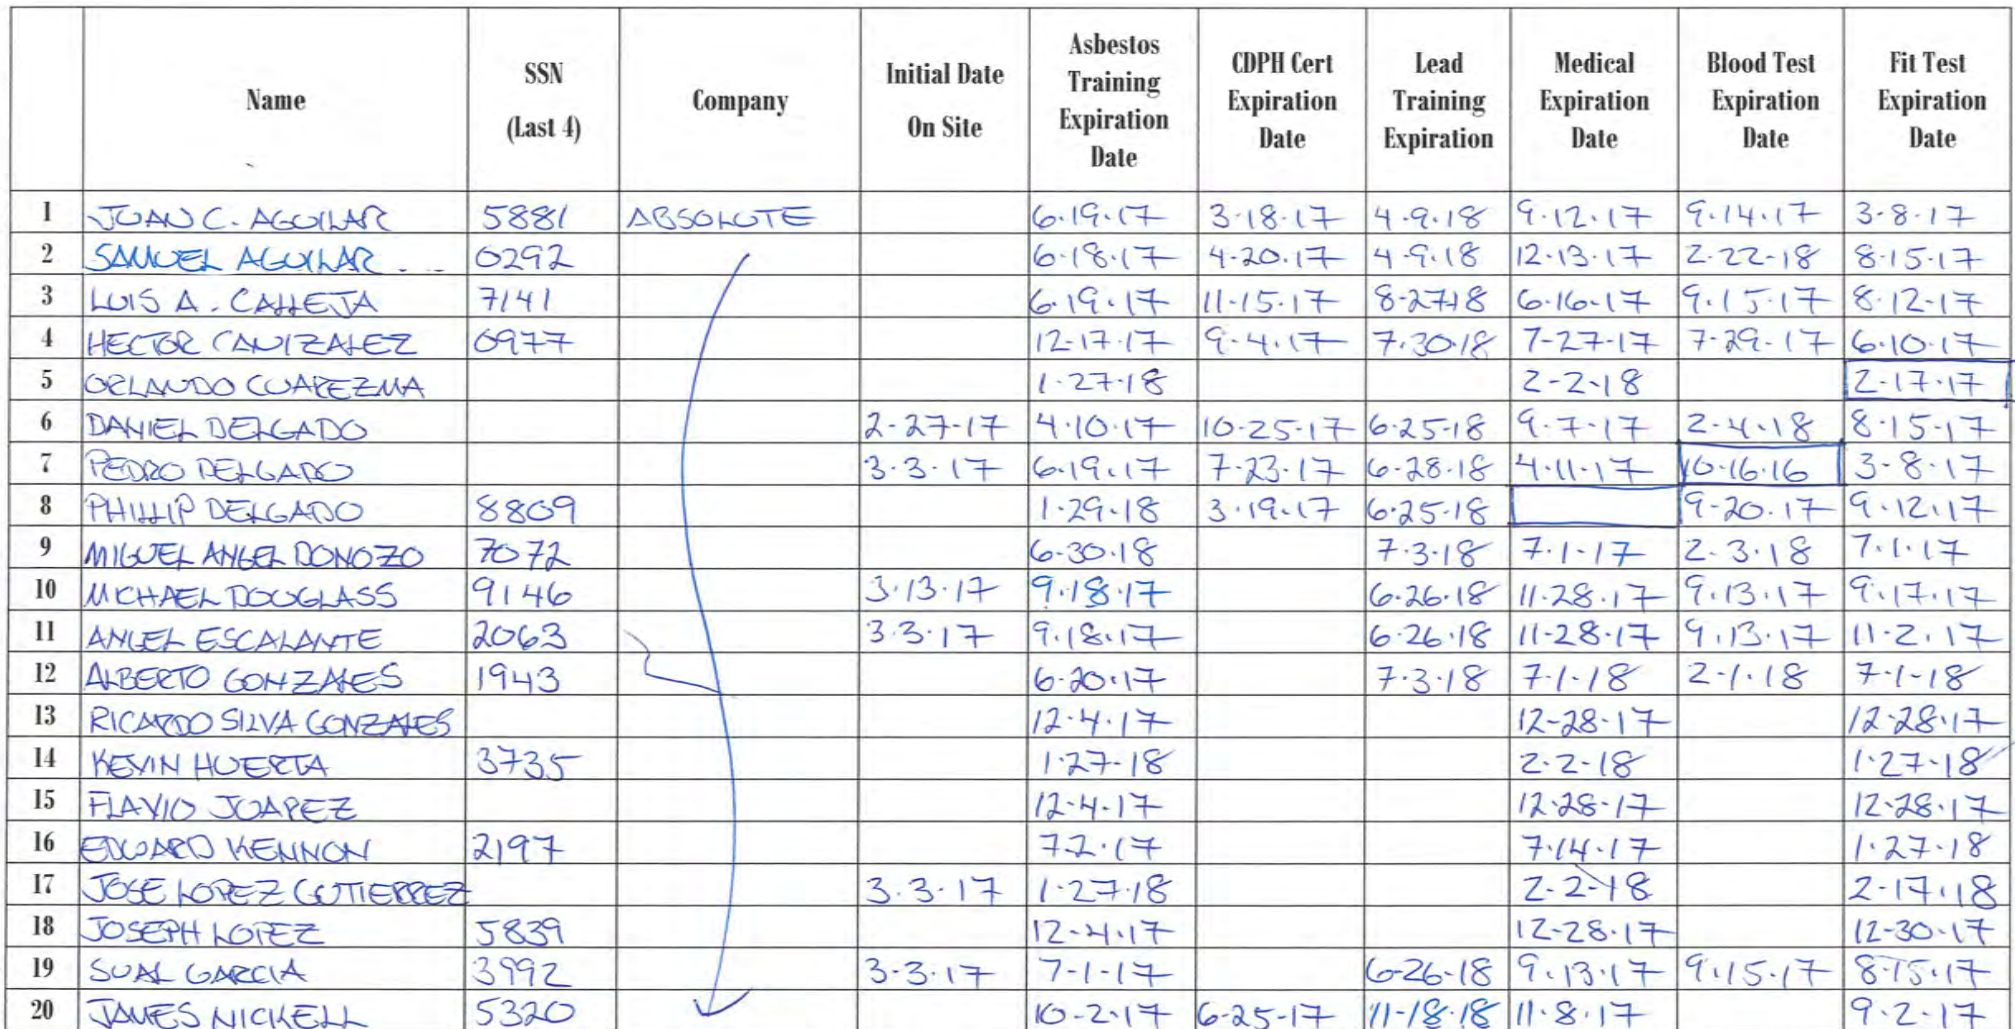 Name SSN (Last 4) Company Initial Date On Site Asbestos Training Expiration Date CDPH Cert Expiration Date Lead Training Expiration Medical Expiration Date Blood Test Expiration Date Fit Test Expiration Date
1 JUAN C. AGUILAR 5881 ABSOLUTE 6.19.17 3.18.17 4.9.18 9.12.17 9.14.17 3-8-17
2 SAMUEL AGUILAR 0292 6.18.17 4.20.17 4.9.18 12.13.17 2.22-18 8-15-17
3 LUIS A. CALLEJA 7141 6.19.17 11-15.17 8-27-18 6-16-17 9.15.17 8.12-17
4 HECTOR CANIZALEZ 0977 12-17.17 9-4.17 7.30.18 7-27-17 7-29-17 6.10.17
5 ORLANDO CUAREZMA 1.27-18 2-2-18 2-17-17
6 DANIEL DELGADO 2-27-17 4.10.17 10-25-17 6-25-18 9.7.17 2-4.18 8-15-17
7 PEDRO DELGADO 3.3.17 6.19.17 7-23.17 6-28.18 4.11.17 10-16-16 3-8.17
8 PHILLIP DELGADO 8809 1.29.18 3.19.17 6-25-18 9-20.17 9.12.17
9 MIGUEL ANGEL DONOZO 7072 6-30.18 7.3.18 7.1-17 2.3.18 7.1.17
10 MICHAEL DOUGLASS 9146 3.13.17 9.18.17 6.26.18 11.28.17 9.13.17 9.17.17
11 ANGEL ESCALANTE 2063 3.3.17 9.18.17 6.26.18 11-28-17 9.13.17 11-2.17
12 ALBERTO GONZALES 1943 6-20.17 7.3.18 7-1-18 2-1.18 7-1-18
13 RICARDO SILVA GONZALES 12.4.17 12-28-17 12-28.17
14 KEVIN HUERTA 3735 1.27-18 2.2-18 1.27-18
15 FLAVIO JUAREZ 12-4.17 12.28-17 12-28.17
16 EDWARD KENNON 2197 7.2.17 7.14.17 1.27-18
17 JOSE LOPEZ GUTIERREZ 3.3.17 1-27.18 2-2-18 2-17.18
18 JOSEPH LOPEZ 5839 12-4.17 12-28.17 12-30.17
19 SUAL GARCIA 3992 3-3.17 7-1-17 6-26-18 9.13.17 9.15.17 8-15.17
20 JAMES NICKELL 5320 10-2.17 6-25-17 11-18.18 11.8.17 9.2.17